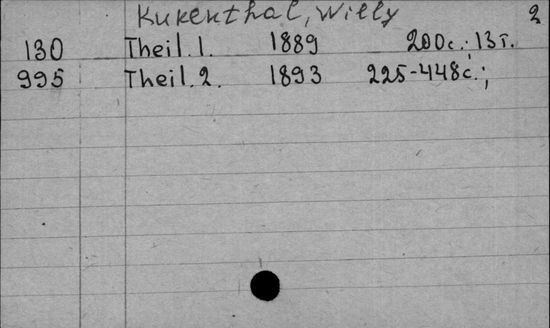 Kukenthal, Willy 2
130 Theil. 1. 1889 200с.; 13т.
995 Theil. 2. 1893 225-448с.;